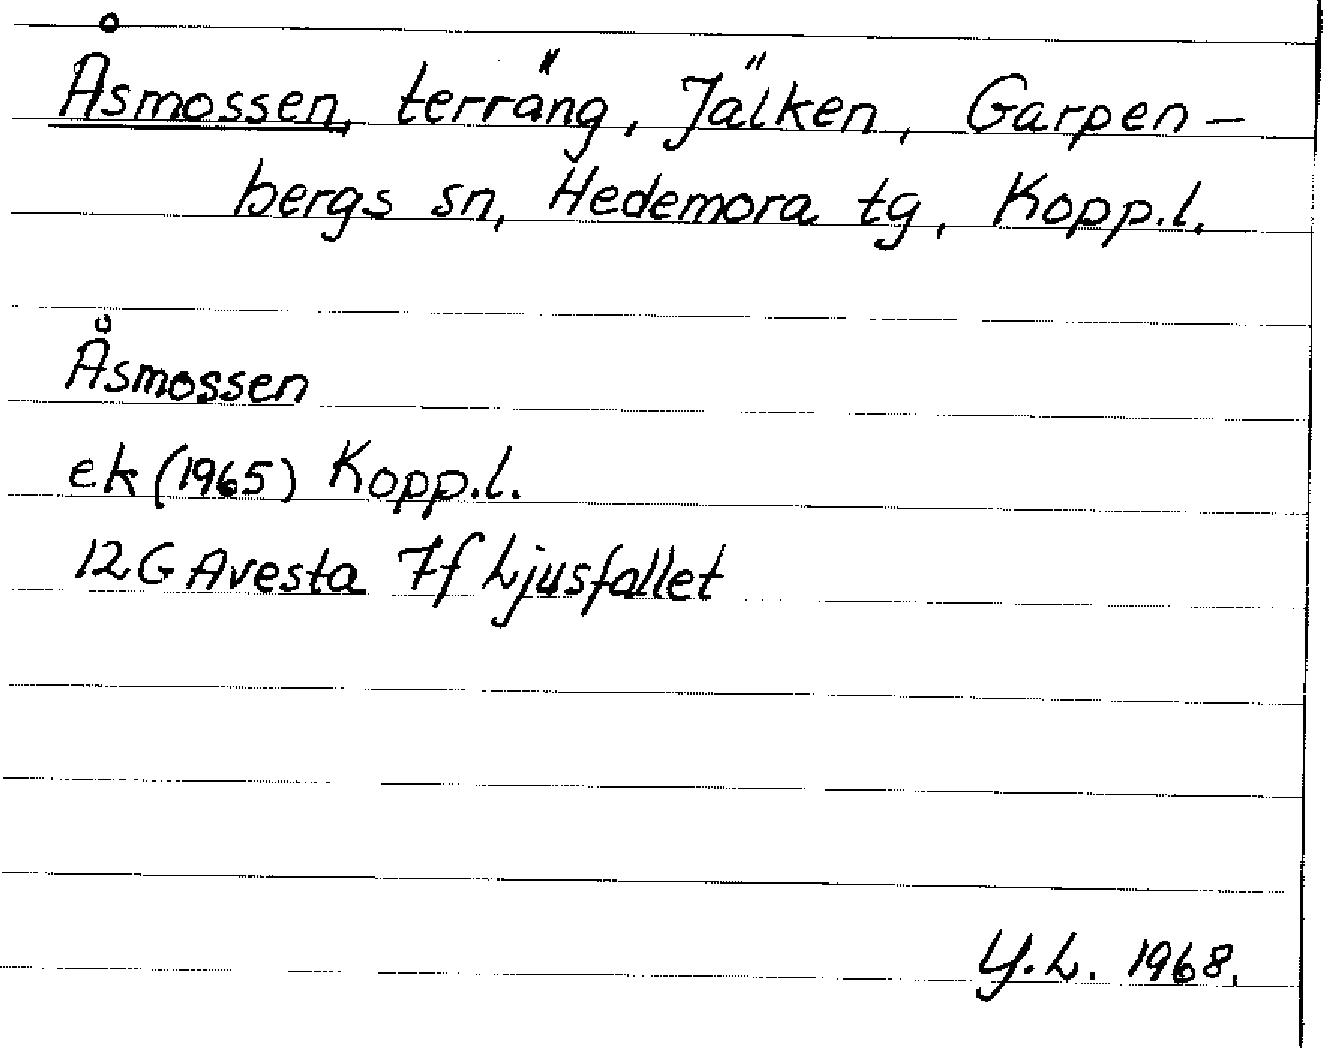 Åsmossen, terräng, Jälken, Garpen-
bergs sn, Hedemora tg, Kopp.l.
Åsmossen
ek (1965) Kopp.l.
12G Avesta 7f Ljusfallet
Y.L. 1968.